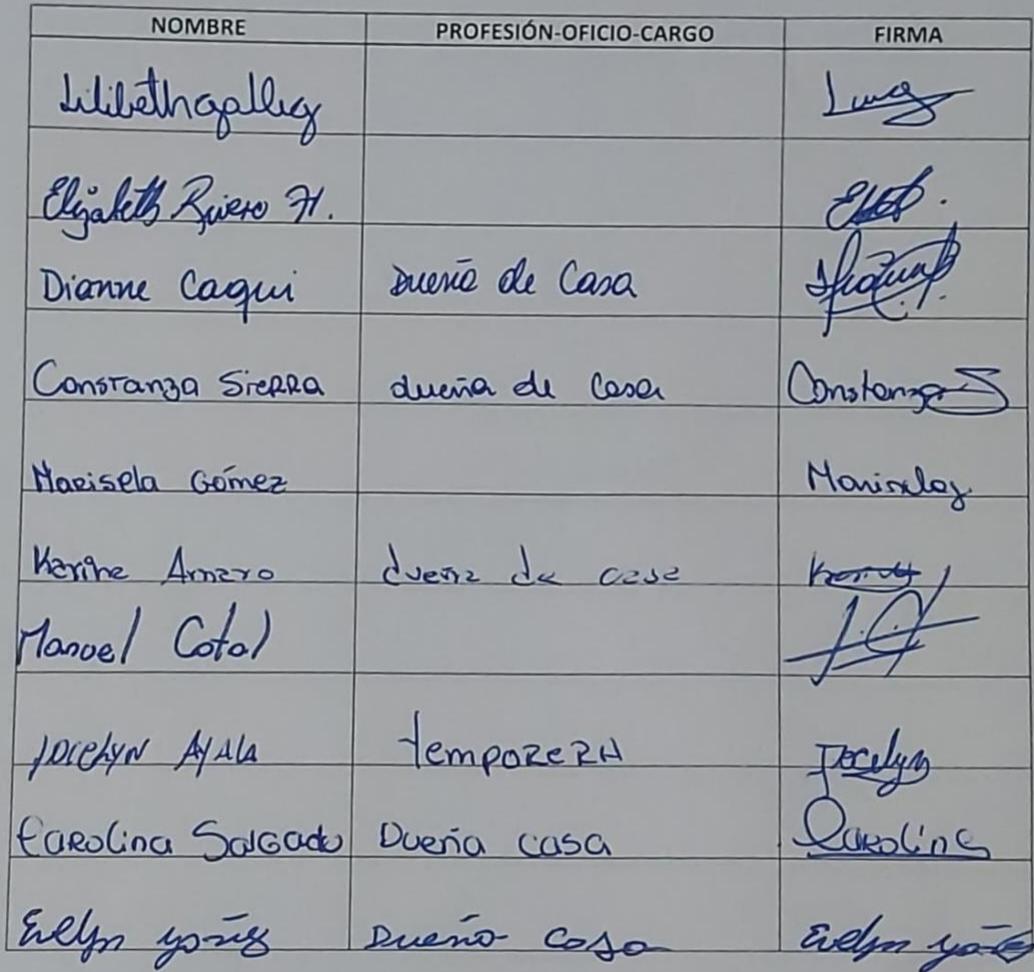 NOMBRE PROFESIÓN-OFICIO-CARGO FIRMA
Lilibeth
Elizabeth Rivero H.
Dianne Caqui Dueña de Casa
Constanza Sierra dueña de Casa Constanza S
Marisela Gómez
Karina Amaro dueña de casa
Manuel Cotal
Jocelyn AyALA temporera Jocelyn
Carolina Salgado Dueña casa Carolina
Evelyn yañez Dueña casa Evelyn yañez